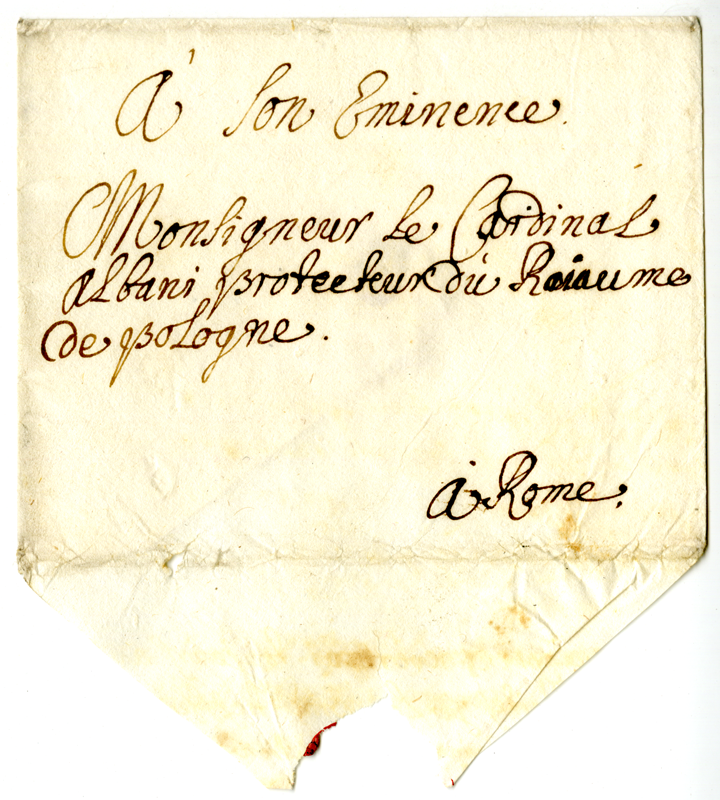 À Son Eminence.
Monsigneur le Cardinal
Albani protecteur dú Roiaume
de pologne.
à Rome.